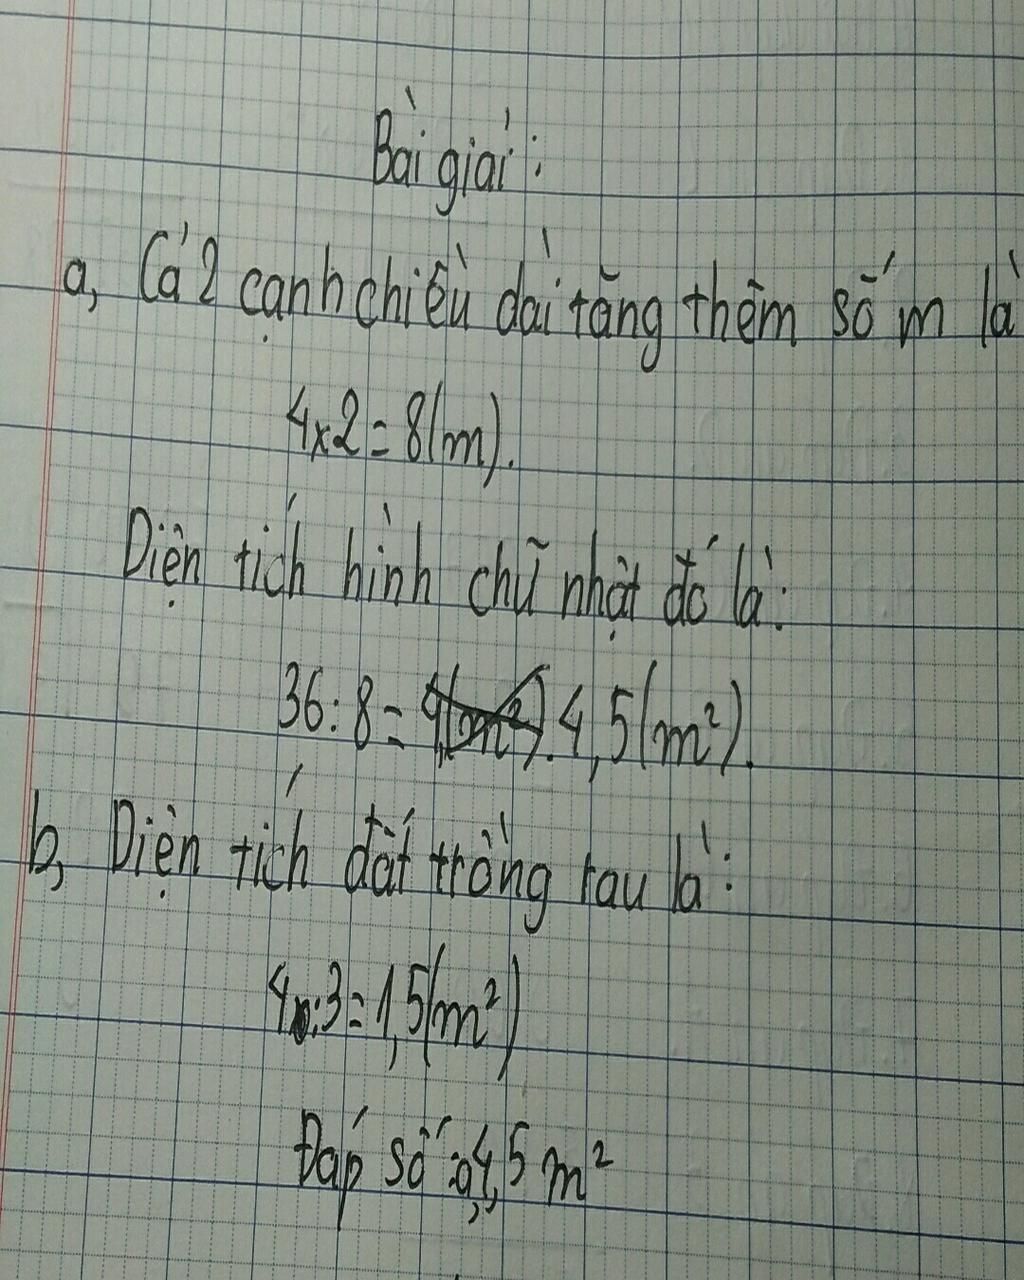 Bài giải:
a, Cả 2 cạnh chiều dài tăng thêm số m là
4x2=8(m).
Diện tích hình chữ nhật đó là:
36:8= 4,5(m²).
b, Diện tích đất trồng rau là:
4:3=1,5(m²)
Đáp số: a, 4,5 m²